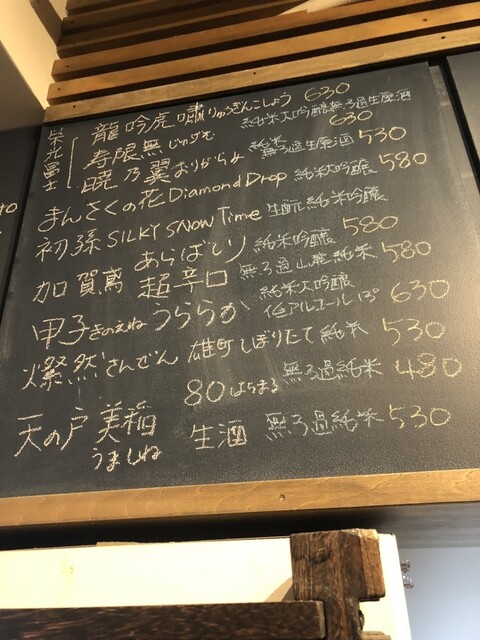 栄光冨士
龍吟虎嘯りゅうぎんこしょう 630
純米大吟醸無ろ過生原酒
寿限無じゅげむ 630
純米
無ろ過生原酒
暁乃翼おりがらみ 530
まんさくの花 Diamond Drop 純米大吟醸 580
初孫 SILKY SNOW Time 生酛純米吟醸
あらばしり 純米吟醸 580
加賀鳶 超辛口 無ろ過山廃純米 580
甲子きのえね うららか 純米大吟醸 低アルコール 13° 630
燦然さんぜん 雄町しぼりたて 純米 530
80はちまる 無ろ過純米 480
天の戸 美稲 生酒 無ろ過純米 530
うましね